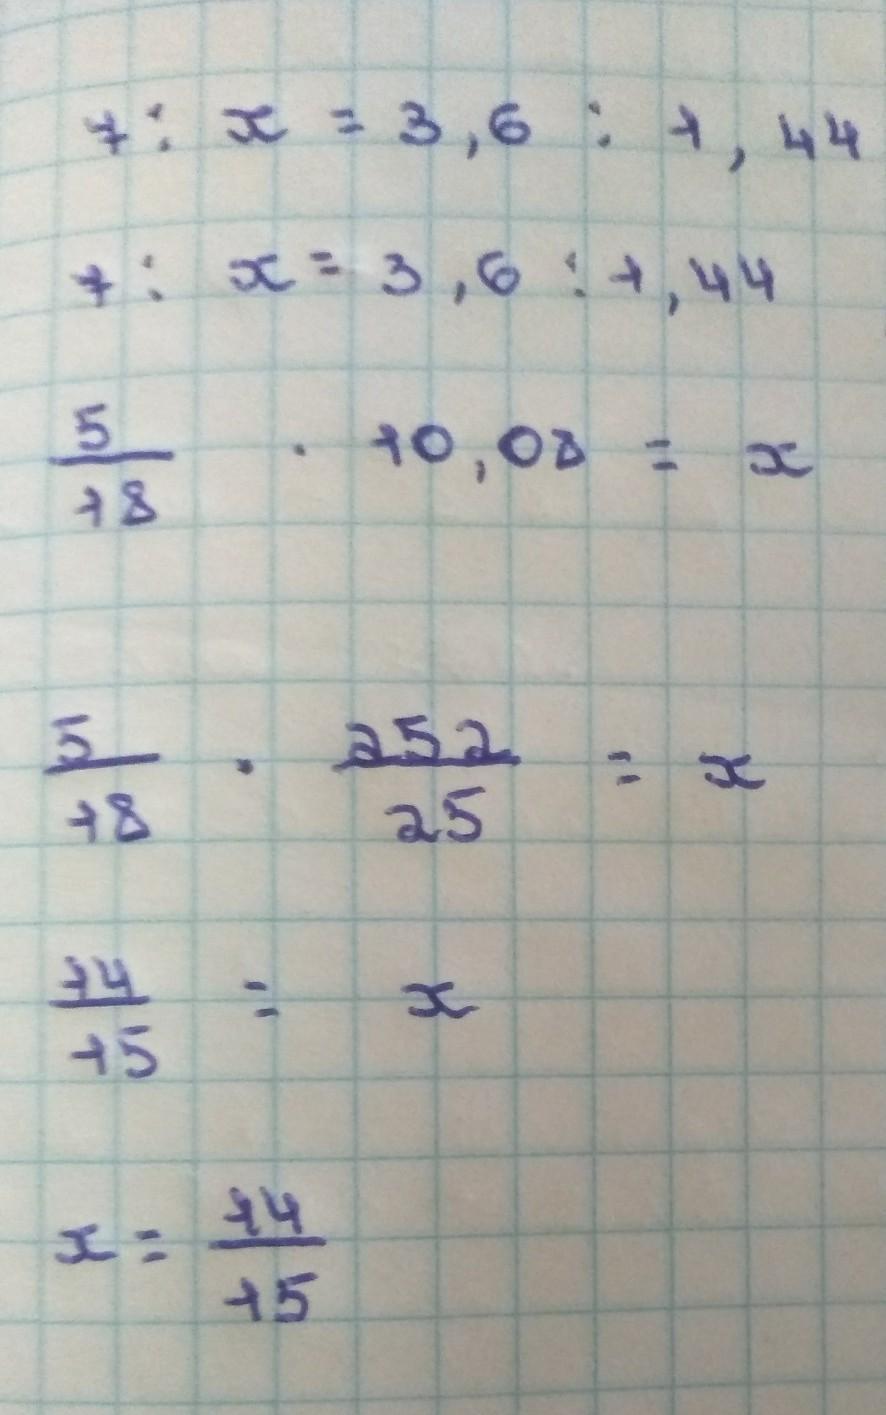 7 : x = 3,6 : 1,44
7 : x = 3,6 : 1,44
5/18 · 10,08 = x
5/18 · 252/25 = x
14/15 = x
x = 14/15